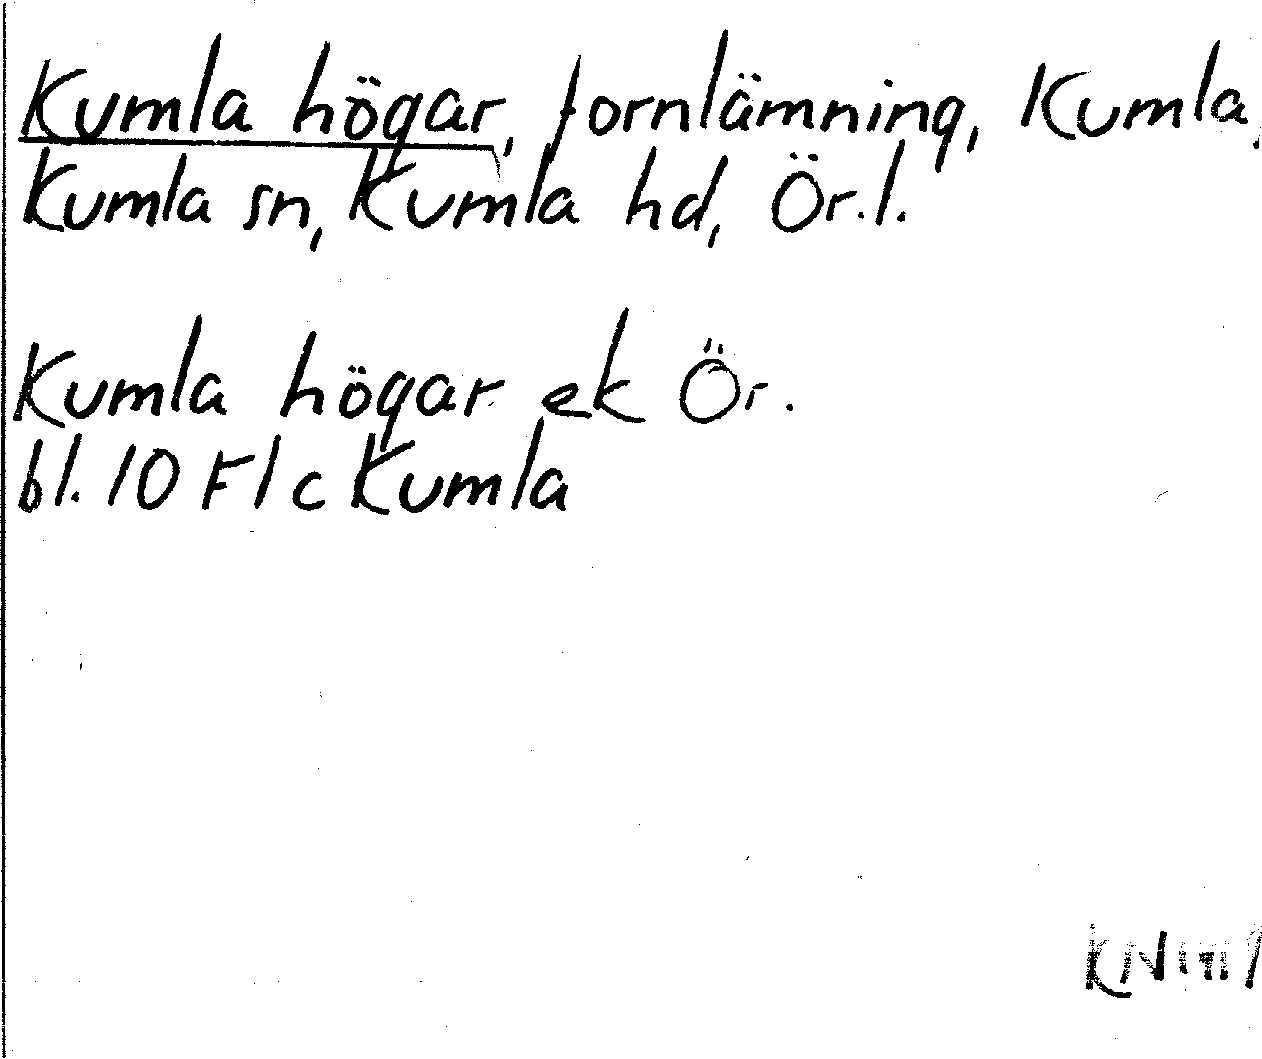 Kumla högar, fornlämning, Kumla,
Kumla sn, Kumla hd, Ör.l.
Kumla högar ek Ör.
bl. 10 F1c Kumla